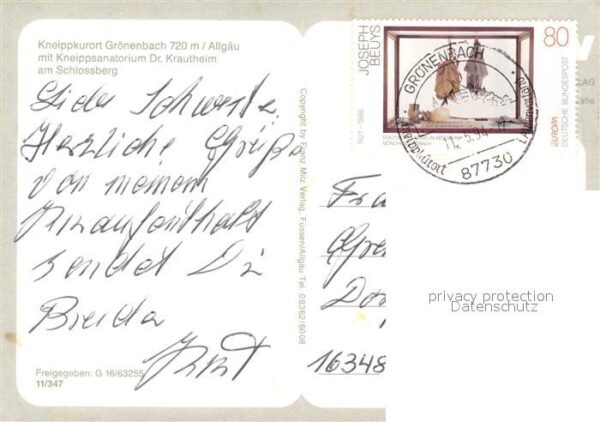 Kneippkurort Grönenbach 720 m / Allgäu
mit Kneippsanatorium Dr. Krautheim
am Schlossberg
Liebe Schwester
Herzliche Grüße
von meinem
Kuraufenthalt
sendet Dir
Bruder
Kurt
Freigegeben: G 16/63255
11/347
Copyright by Franz Milz Verlag, Füssen/Allgäu Tel. 08362/6008
JOSEPH
BEUYS
1921-1986
80
DEUTSCHE BUNDESPOST
EUROPA
GRÖNENBACH
Kneippkurort
87730
Fra
Do
16348
privacy protection
Datenschutz